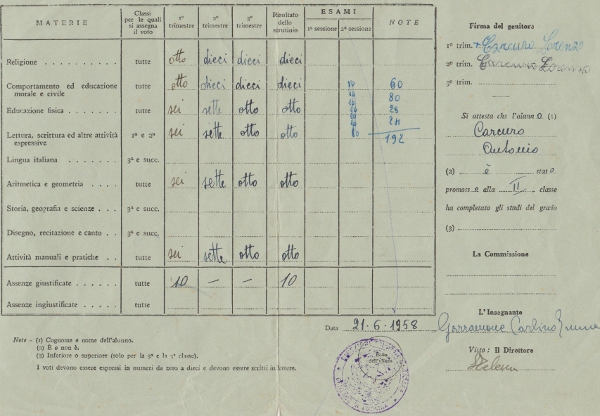 MATERIE Classi per le quali si assegna il voto 1º trimestre 2º trimestre 3º trimestre Risultato dello scrutinio ESAMI 1ª sessione 2ª sessione NOTE
Religione tutte otto dieci dieci dieci
Comportamento ed educazione morale e civile tutte otto dieci dieci dieci 60
80
Educazione fisica tutte sei sette otto otto 28
24
Lettura, scrittura ed altre attività espressive 1ª e 2ª sei sette otto otto 80 192
Lingua italiana 3ª e succ.
Aritmetica e geometria tutte sei sette otto otto
Storia, geografia e scienze 3ª e succ.
Disegno, recitazione e canto 3ª e succ.
Attività manuali e pratiche tutte sei sette otto otto
Assenze giustificate tutte 10 — — 10
Assenze ingiustificate tutte
Note - (1) Cognome e nome dell'alunno.
(2) È o non è.
(3) Inferiore o superiore (solo per la 3ª e la 5ª classe).
I voti devono essere espressi in numeri da zero a dieci e devono essere scritti in lettere.
Data 21-6-1958
Firma del genitore
1º trim. Carcuro Lorenzo
2º trim. Carcuro Lorenzo
3º trim.
Si attesta che l'alunno (1)
Carcuro
Antonio
(2) è stato
promosso alla II classe
ha completato gli studi del grado
(3)
La Commissione
L'Insegnante
Visto: Il Direttore